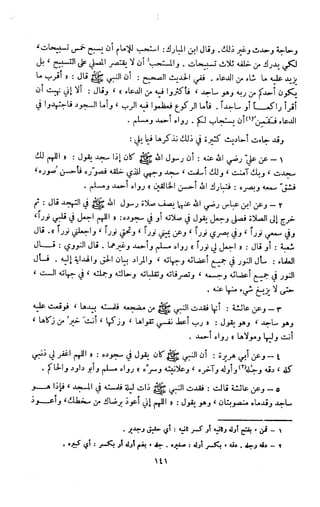 وحاجة وحدث وغير ذلك . وقال ابن المبارك : استحب للإمام أن يسبح خمس تسبيحات ،
لكي يدرك من خلفه ثلاث تسبيحات . والمستحب أن لا يقتصر المصلي على التسبيح ، بل
يزيد عليه ما شاء من الدعاء . ففي الحديث الصحيح : أن النبي ﷺ قال : « أقرب ما
يكون أحدكم من ربه وهو ساجد ، فأكثروا فيه من الدعاء » وقال : « ألا إني نهيت أن
أقرأ راكعا أو ساجدا . فأما الركوع فعظموا فيه الرب ، وأما السجود فاجتهدوا في
الدعاء فقمن(١) أن يستجاب لكم . رواه أحمد ومسلم .
وقد جاءت أحاديث كثيرة في ذلك نذكرها فيما يلي :
١ - عن علي رضي الله عنه : أن رسول الله ﷺ كان إذا سجد يقول : « اللهم لك
سجدت ، وبك آمنت ، ولك أسلمت ، سجد وجهي للذي خلقه فصوره فأحسن صوره ،
فشق سمعه وبصره : فتبارك الله أحسن الخالقين » رواه أحمد ومسلم .
٢ - وعن ابن عباس رضي الله عنهما يصف صلاة رسول الله ﷺ في التهجد قال : ثم
خرج إلى الصلاة فصلى وجعل يقول في صلاته أو في سجوده : « اللهم اجعل في قلبي نورا ،
وفي سمعي نورا ، وفي بصري نورا ، وعن يميني نورا ، وتحتي نورا ، واجعلني نورا » . قال
شعبة : أو قال : « اجعل لي نورا » رواه مسلم وأحمد وغيرهما . قال النووي : قال
العلماء : سأل النور في جميع أعضائه وجهاته ، والمراد بيان الحق والهداية إليه . فسأل
النور في جميع أعضائه وجسمه ، وتصرفاته وتقلباته وحالاته وجملته ، في جهاته الست ،
حتى لا يزيغ شيء منها عنه .
٣ - وعن عائشة : أنها فقدت النبي ﷺ من مضجعه فلمسته بيدها ، فوقعت عليه
وهو ساجد ، وهو يقول : « رب أعط نفسي تقواها ، وزكها ، أنت خير من زكاها ،
أنت وليها ومولاها » رواه أحمد .
٤ - وعن أبي هريرة : أن النبي ﷺ كان يقول في سجوده : « اللهم اغفر لي ذنبي
كله ، دقه وجله(٢) وأوله وآخره ، وعلانيته وسره » رواه مسلم وأبو داود والحاكم .
٥ - وعن عائشة قالت : فقدت النبي ﷺ ذات ليلة فلمسته في المسجد ، فإذا هو
ساجد وقدماه منصوبتان ، وهو يقول : « اللهم إني أعوذ برضاك من سخطك ، وأعوذ
١ - قمن ، بفتح أوله وثانيه أو كسر ثانيه : أي حقيق وجدير .
٢ - دقه وجله . دقه ، بكسر أوله : صغيره . جله ، بضم أوله أو بكسر : أي كبيره .
١٤١